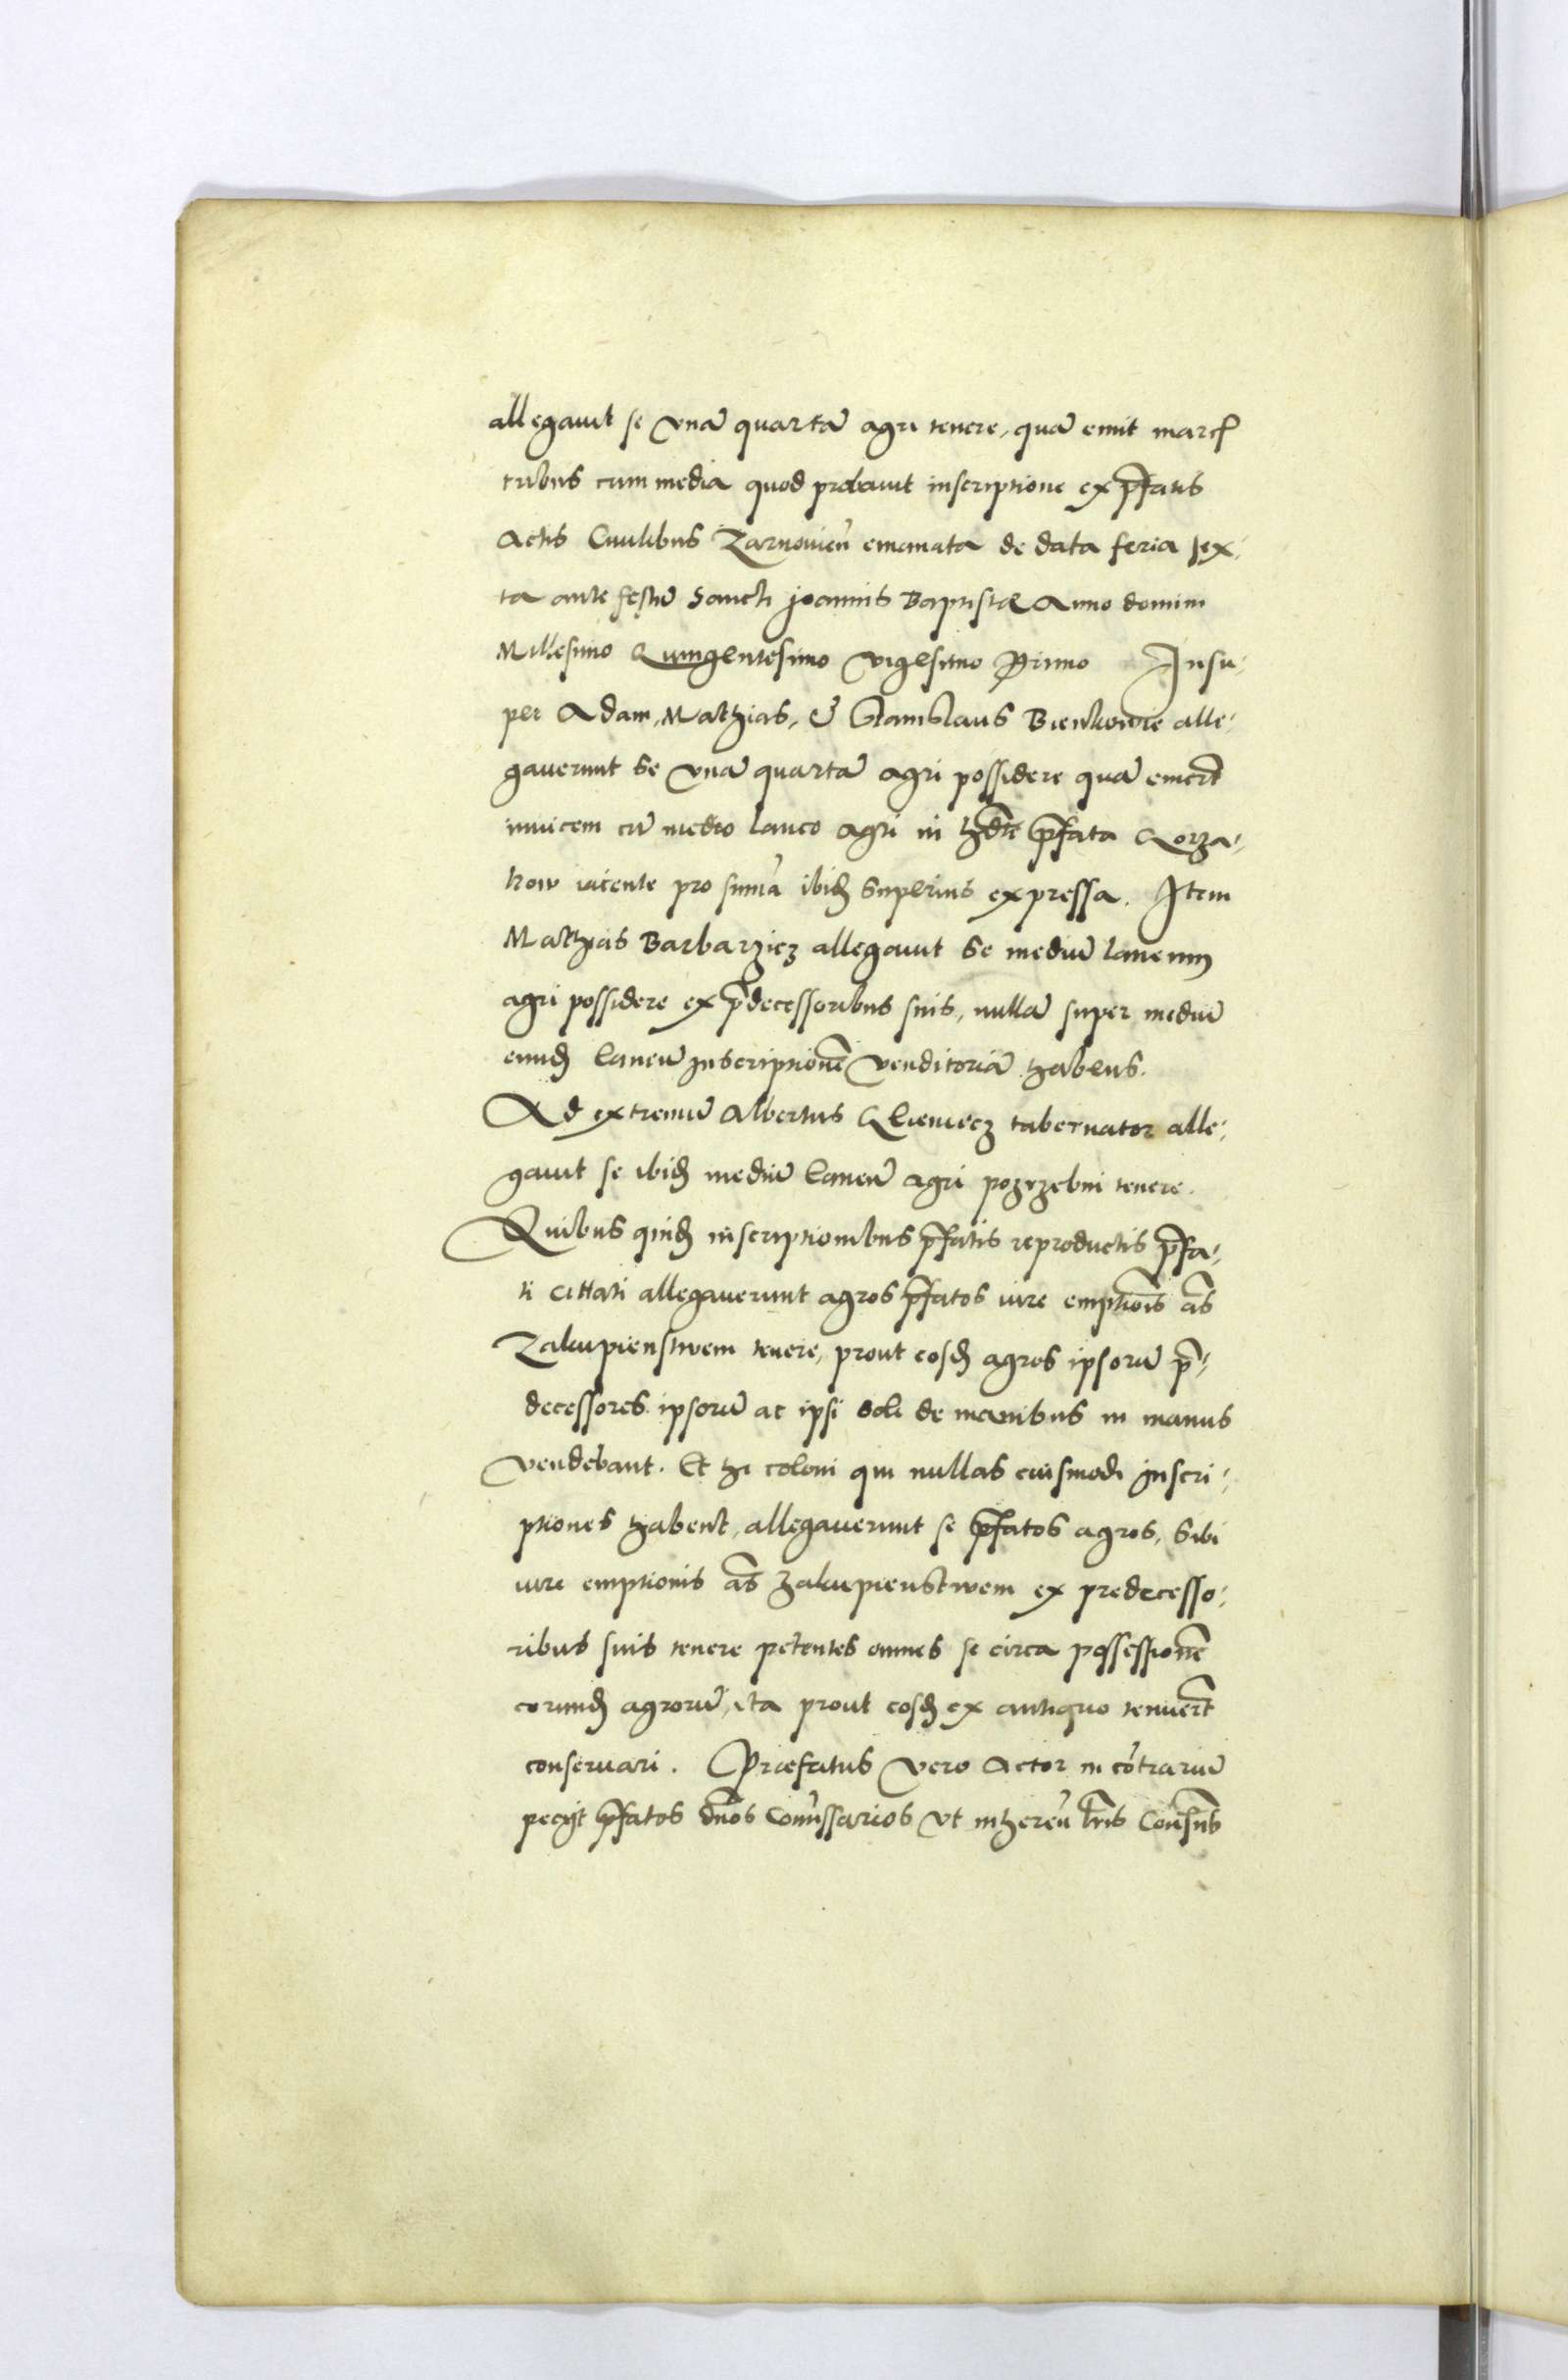 allegauit se vnā quartā agri tenere, quā emit marcꝭ
tribus cum media quod probauit inscriptione ex p̄fatis
Actis Ciuilibus Zarnowieñ emanata de data feria sex-
ta ante festū Sancti Joannis Baptistæ Anno domini
Millesimo Quingentesimo vigesimo Primo Insu-
per Adam, Mathias, & Stanislaus Bienkowie alle-
gauerunt se vnā quartā agri possidere quā emert̄
inuicem cū medio laneo agri in hdte p̄fata Korza-
kow iacente pro sum̄a ibid̄ superius expressa. Item
Mathias Barbarzicz allegauit se mediū laneum
agri possidere ex p̄decessoribus suis, nullā super mediū
eund̄ laneū Inscriptionē venditoriā habens.
Ad extremū Albertus Kliemecz tabernator alle-
gauit se ibid̄ mediū laneū agri pozrzebni tenere.
Quibus quid̄ inscriptionibus p̄fatis reproductis p̄fa-
ti citati allegauerunt agros p̄fatos iure emptiōis al̄s
Zakupienstwem tenere, prout eosd̄ agros ipsorū p̄-
decessores ipsorū ac ipsi soli de manibus in manus
vendebant. Et hi coloni qui nullas eiusmodi Inscri-
ptiones habent, allegauerunt se p̄fatos agros, sibi
iure emptionis al̄s Zakupienstwem ex predecesso-
ribus suis tenere petentes omnes se circa possessionē
eorund̄ agrorū, ita prout eosd̄ ex antiquo tenuert̄
conseruari. Præfatus vero Actor in cōtrariū
pecijt p̄fatos dn̄os Com̄issarios vt inhereñ lr̄is Con̄sus